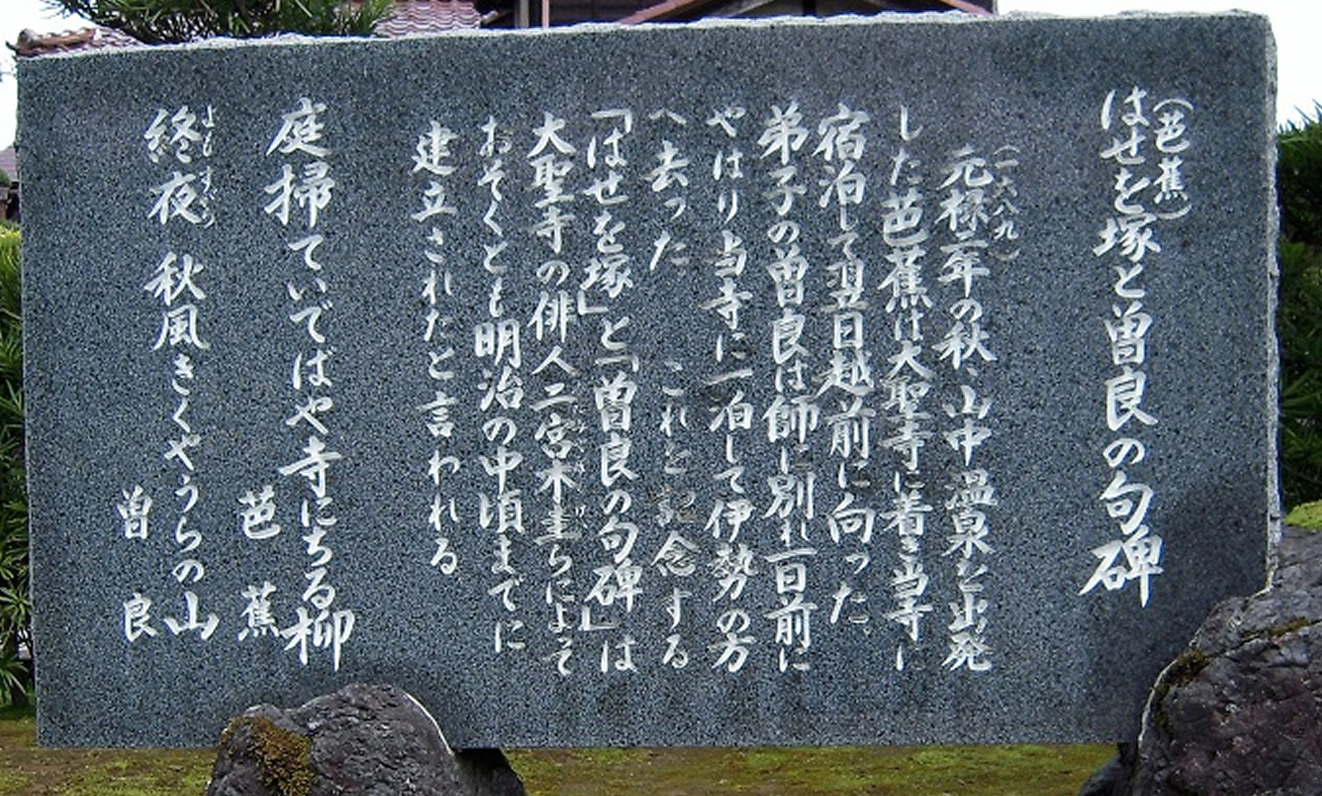 はせを塚と曽良の句碑
(芭蕉)
元禄二年の秋、山中温泉を出発
(一六八九)
した芭蕉は大聖寺に着き当寺に
宿泊して翌日越前に向った。
弟子の曽良は師に別れ一日前に
やはり当寺に一泊して伊勢の方
へ去った これを記念する
「はせを塚」と「曽良の句碑」は
大聖寺の俳人二宮木圭らによって
おそくとも明治の中頃までに
建立されたと言われる
庭掃ていでばや寺にちる柳
芭蕉
終夜 秋風きくやうらの山
よもすがら
曽良